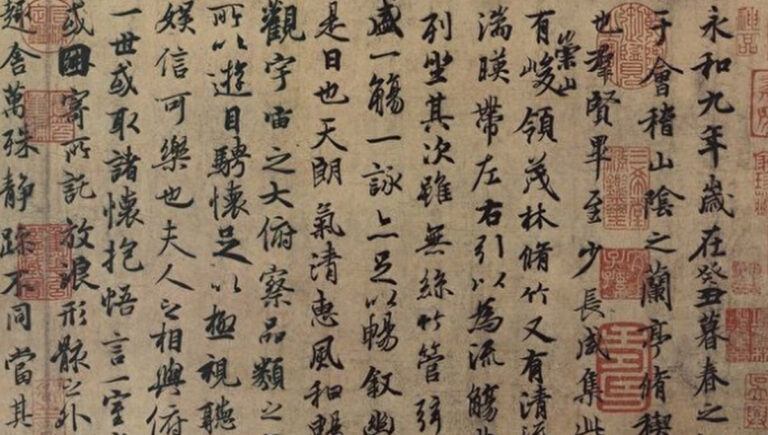 永和九年歲在癸丑暮春之
于會稽山陰之蘭亭脩稧
也羣賢畢至少長咸集此
崇山
有峻領茂林脩竹又有清流
湍暎帶左右引以為流觴
列坐其次雖無絲竹管弦
盛一觴一詠亦足以暢敘幽
是日也天朗氣清惠風和暢
觀宇宙之大俯察品類之
所以遊目騁懷足以極視聽
娛信可樂也夫人之相與俯
一世或取諸懷抱悟言一室
或因寄所託放浪形骸之外
趣舍萬殊静躁不同當其
神品